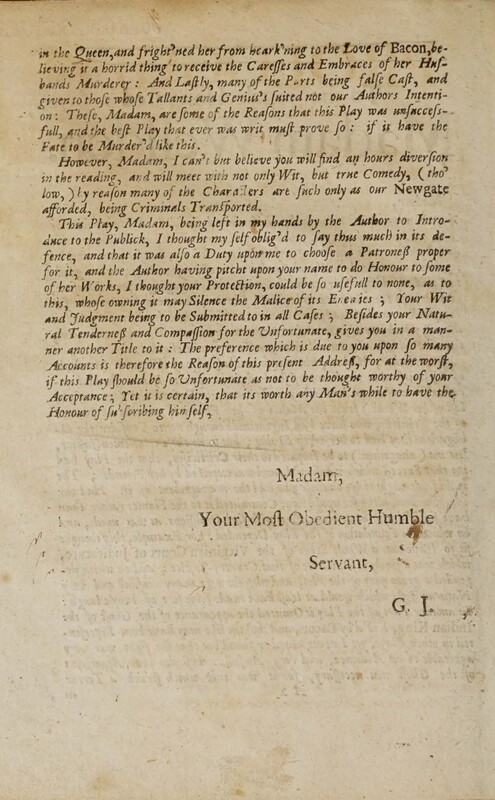 in the Queen, and fright'ned her from heark'ning to the Love of Bacon, be-
lieving it a horrid thing to receive the Caresses and Embraces of her Hus-
bands Murderer : And Lastly, many of the Parts being false Cast, and
given to those whose Tallants and Genius's suited not our Authors Intenti-
on : These, Madam, are some of the Reasons that this Play was unsuccess-
full, and the best Play that ever was writ must prove so : if it have the
Fate to be Murder'd like this.
However, Madam, I can't but believe you will find an hours diversion
in the reading, and will meet with not only Wit, but true Comedy, ( tho'
low, ) by reason many of the Characters are such only as our Newgate
afforded, being Criminals Transported.
This Play, Madam, being left in my hands by the Author to Intro-
duce to the Publick, I thought my self oblig'd to say thus much in its de-
fence, and that it was also a Duty upon me to choose a Patroness proper
for it, and the Author having pitcht upon your name to do Honour to some
of her Works, I thought your Protection, could be so usefull to none, as to
this, whose owning it may Silence the Malice of its Enemies ; Your Wit
and Judgment being to be Submitted to in all Cases ; Besides your Natu-
ral Tenderness and Compassion for the Unfortunate, gives you in a man-
ner another Title to it : The preference which is due to you upon so many
Accounts is therefore the Reason of this present Address, for at the worst,
if this Play should be so Unfortunate as not to be thought worthy of your
Acceptance ; Yet it is certain, that its worth any Man's while to have the
Honour of subscribing himself,
Madam,
Your Most Obedient Humble
Servant,
G. J.